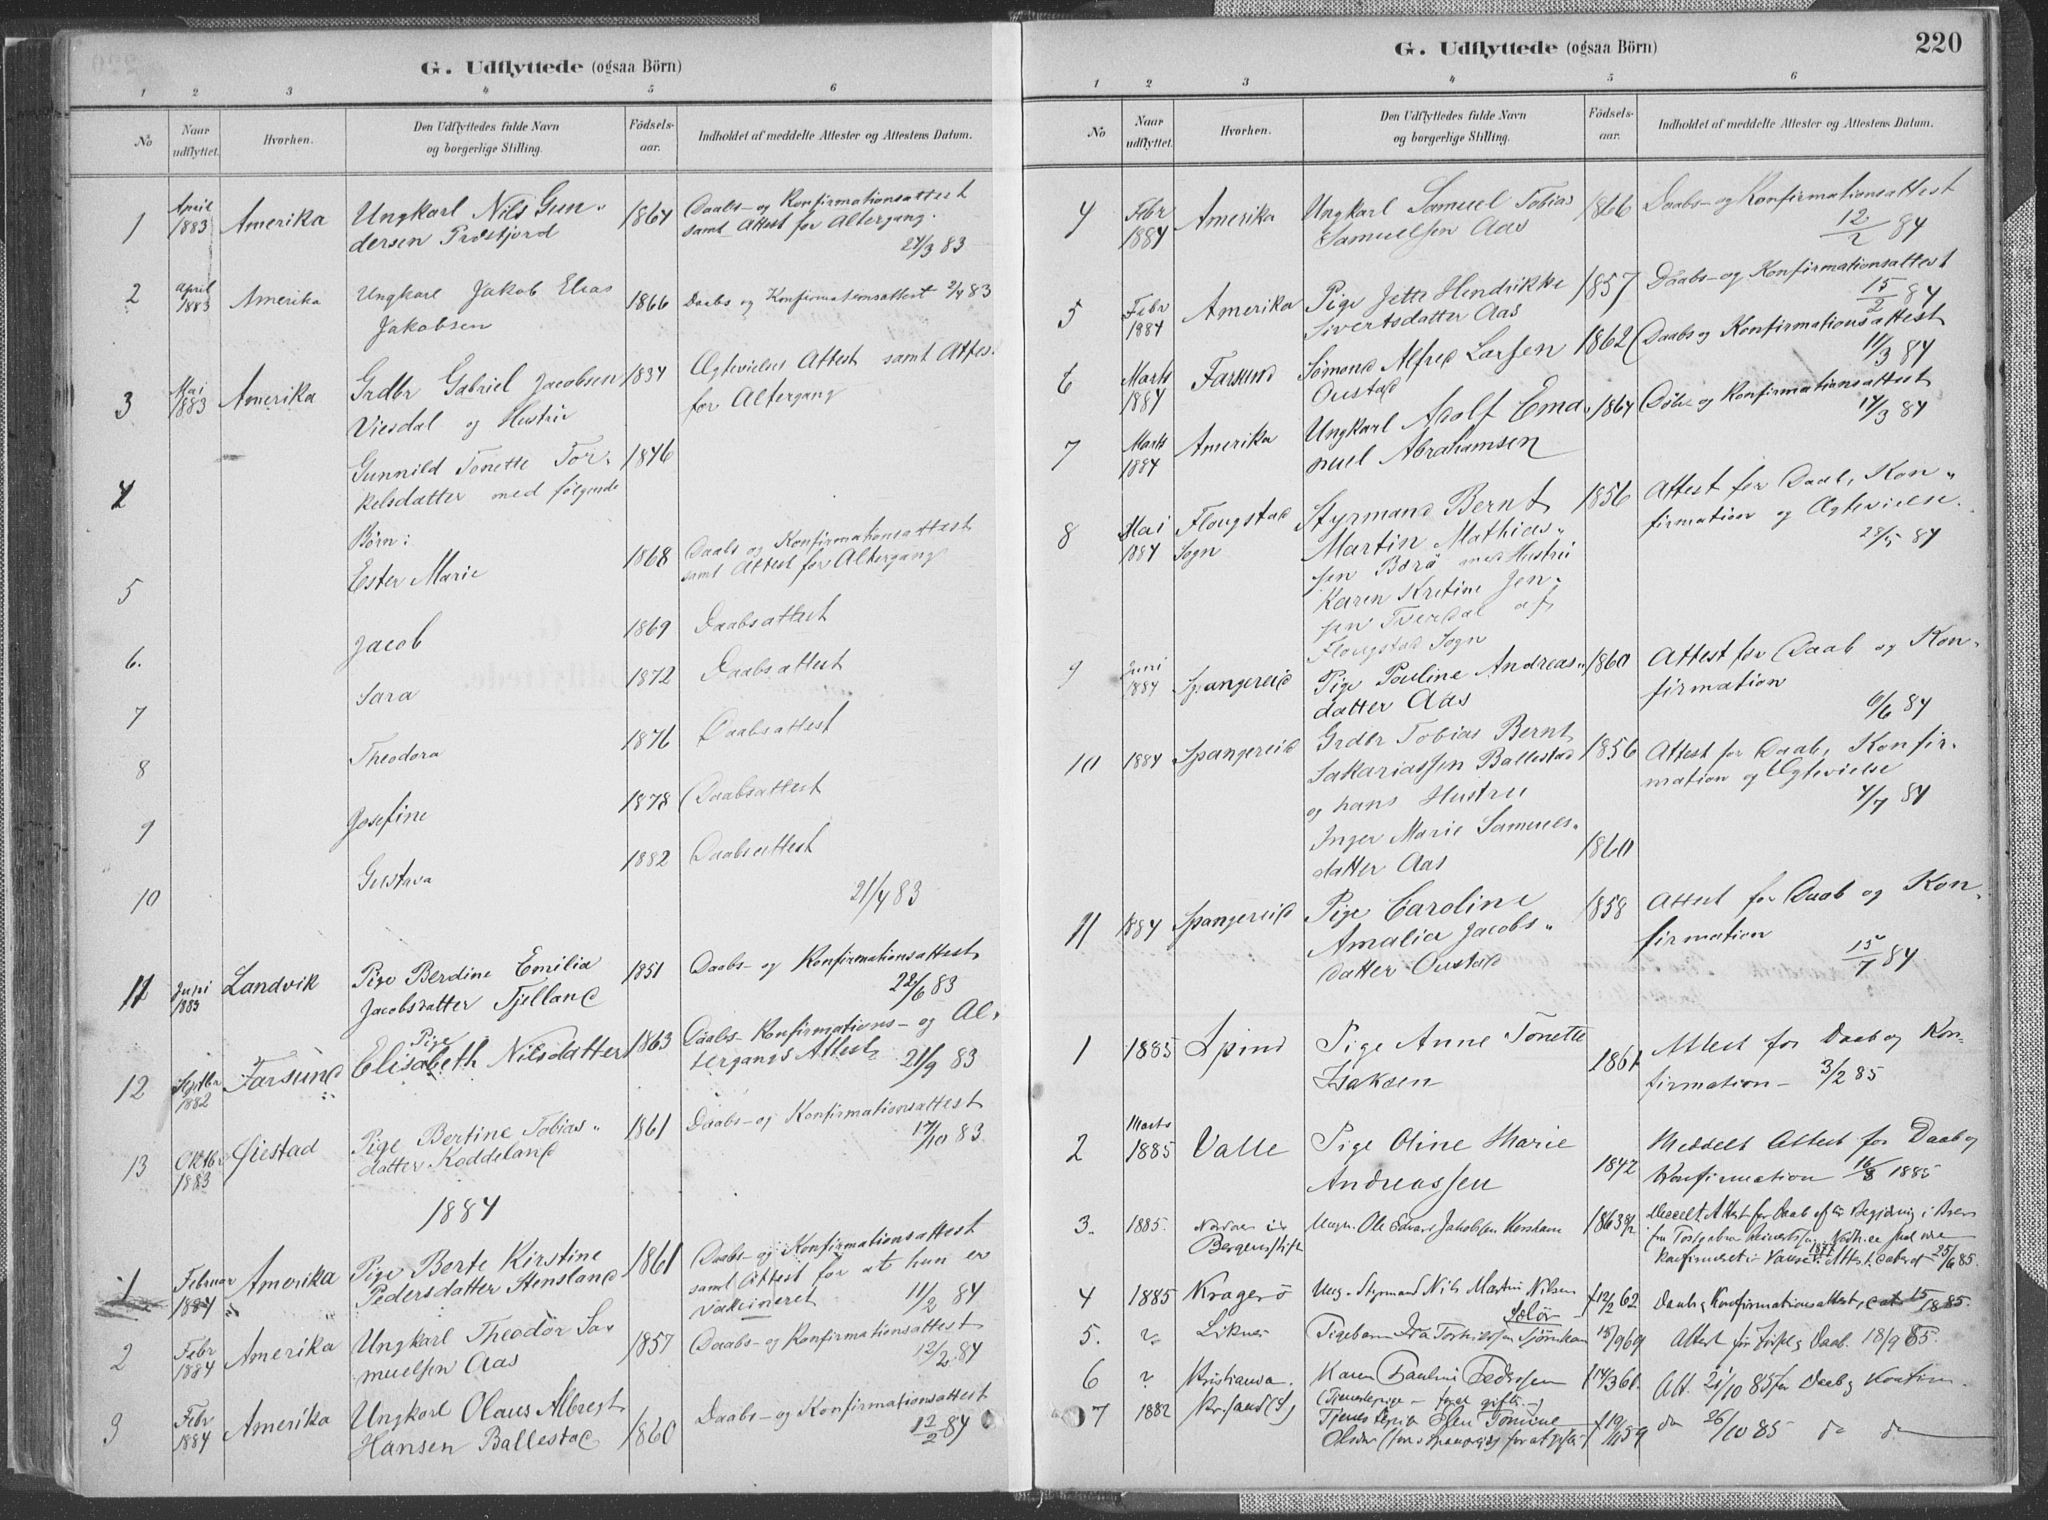 G. Udflyttede (ogsaa Börn)
1 2 3 4 5 6
No
Naar udflyttet.
Hvorhen.
Den Udflyttedes fulde Navn og borgerlige Stilling.
Födsels-aar.
Indholdet af meddelte Attester og Attestens Datum.
1 April 1883 Amerika Ungkarl Nils Gun- 1864 Daabs- og Konfirmationsattest
dersen samt Attest for Altergang.
24/3 83
2 April 1883 Amerika Ungkarl Jakob Elias 1866 Daabs og Konfirmationsattest 2/4 83
Jakobsen
3 Mai 1883 Amerika Grdbr Gabriel Jacobsen 1834 Ægtevielses Attest samt Attes-
Viesdal og Hustru for Altergang
4 Gunnild Tonette Tor- 1846
kelsdatter med følgende
Børn:
5 Ester Marie 1868 Daabs og Konfirmationsattest
samt Attest for Altergang
6. Jacob 1869 Daabsattest
7 Sara 1872 Daabsattest
8 Theodora 1876 Daabsattest
9 Josefine 1878 Daabsattest
10 Gustava 1882 Daabsattest
21/4 83
11 Juni 1883 Landvik Pige Berdine Emilia 1851 Daabs- og Konfirmationsattest
Jacobsdatter Tjelland 22/6 83
12 Septbr 1882 Farsund Pige Elisabeth Nilsdatter 1863 Daabs- Konfirmations- og Al-
tergangs Attest 21/9 83
13 Oktbr 1883 Øiestad Pige Bertine Tobias- 1861 Daabs- og Konfirmationsattest
datter Koddeland 17/10 83
1884
1 Februar 1884 Amerika Pige Borte Kirstine 1861 Daabs- og Konfirmationsattest
Pedersdatter Stensland samt Attest for at hun er
vakcineret 11/2 84
2 Febr 1884 Amerika Ungkarl Theodor Sa- 1857 Daabs- og Konfirmationsattest
muelsen Aas 12/2 84
3 Febr 1884 Amerika Ungkarl Olaus Albregt 1860 Daabs- og Konfirmationsattest
Hansen Ballestad 12/2 84
G. Udflyttede (ogsaa Börn)
220
1 2 3 4 5 6
No
Naar udflyttet.
Hvorhen.
Den Udflyttedes fulde Navn og borgerlige Stilling.
Födsels-aar.
Indholdet af meddelte Attester og Attestens Datum.
4 Febr 1884 Amerika Ungkarl Samuel Tobias 1866 Daabs- og Konfirmationsattest
Samuelsen Aas 12/2 84
5 Febr 1884 Amerika Pige Jette Hendrikke 1857 Daabs- og Konfirmationsattest
Sivertsdatter Aas 15/2 84
6 Marts 1884 Farsund Sømand Alfred Larsen 1862 Daabs og Konfirmationsattest
Oustad 11/3 84
7 Marts 1884 Amerika Ungkarl Adolf Ema- 1864 Døbe og Konfirmationsattest
nuel Abrahamsen 14/3 84
8 Mai 1884 Flougstad Sogn Styrmand Bernt 1856 Attest for Daab, Kon-
Martin Mathias- firmation og Ægtevielse.
sen Børø med Hustru 28/5 84
Karen Kretine Jen-
sen Tverdal af
Flougstad Sogn
9 Juni 1884 Spangereid Pige Pouline Andreas- 1860 Attest for Daab og Kon-
datter Aas firmation
6/6 84
10 1884 Spangereid Grdbr Tobias Bernt 1856 Attest for Daab, Konfir-
Sakariassen Ballestad mation og Ægtevielse
og hans Hustru 4/7 84
Inger Marie Samuels-
datter Aas 1860
11 1884 Spangereid Pige Caroline 1858 Attest for Daab og Kon-
Amalia Jacobs- firmation
datter Oustad 15/7 84
1 1885 Spind Pige Anne Tonette 1861 Attest for Daab og Kon-
Isaksen firmation - 3/2 85
2 Marts 1885 Valle Pige Oline Marie 1842 Meddelt Attest for Daab og
Andreassen Konfirmation 16/3 1885
3. 1885. Bergens Stift Ungk. Ole Edvard Jakobsen 1863 Meddelt Attest for Daab efter
25/6 85.
4 1885 Kragerø Ung. Styrmand Nils Martin Nilsen f 12/2 62 Daab og Konfirmationsattest, dat 15 1885.
5. " Liknes Pigebarn Ida 18/9 69 Attest for Daab. 18/9 85.
6 " Kristiansa. Karen Pauline Pedersen f 14/3 61. Att. 21/10 85 for Daab og Konfirm.
(Tjenestepige - forat giftes -)
7 1882 Kr.sand (S) Tjenestepige Tomine f 19/11 59 do 26/10 85 do do